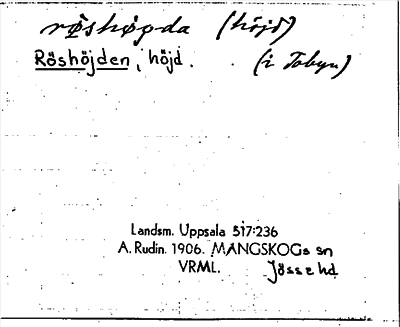 røshøgda (höjd)
Röshöjden, höjd. (i Tobyn)
Landsm. Uppsala 517:236
A. Rudin. 1906. MANGSKOGs sn
VRML. Jösse hd